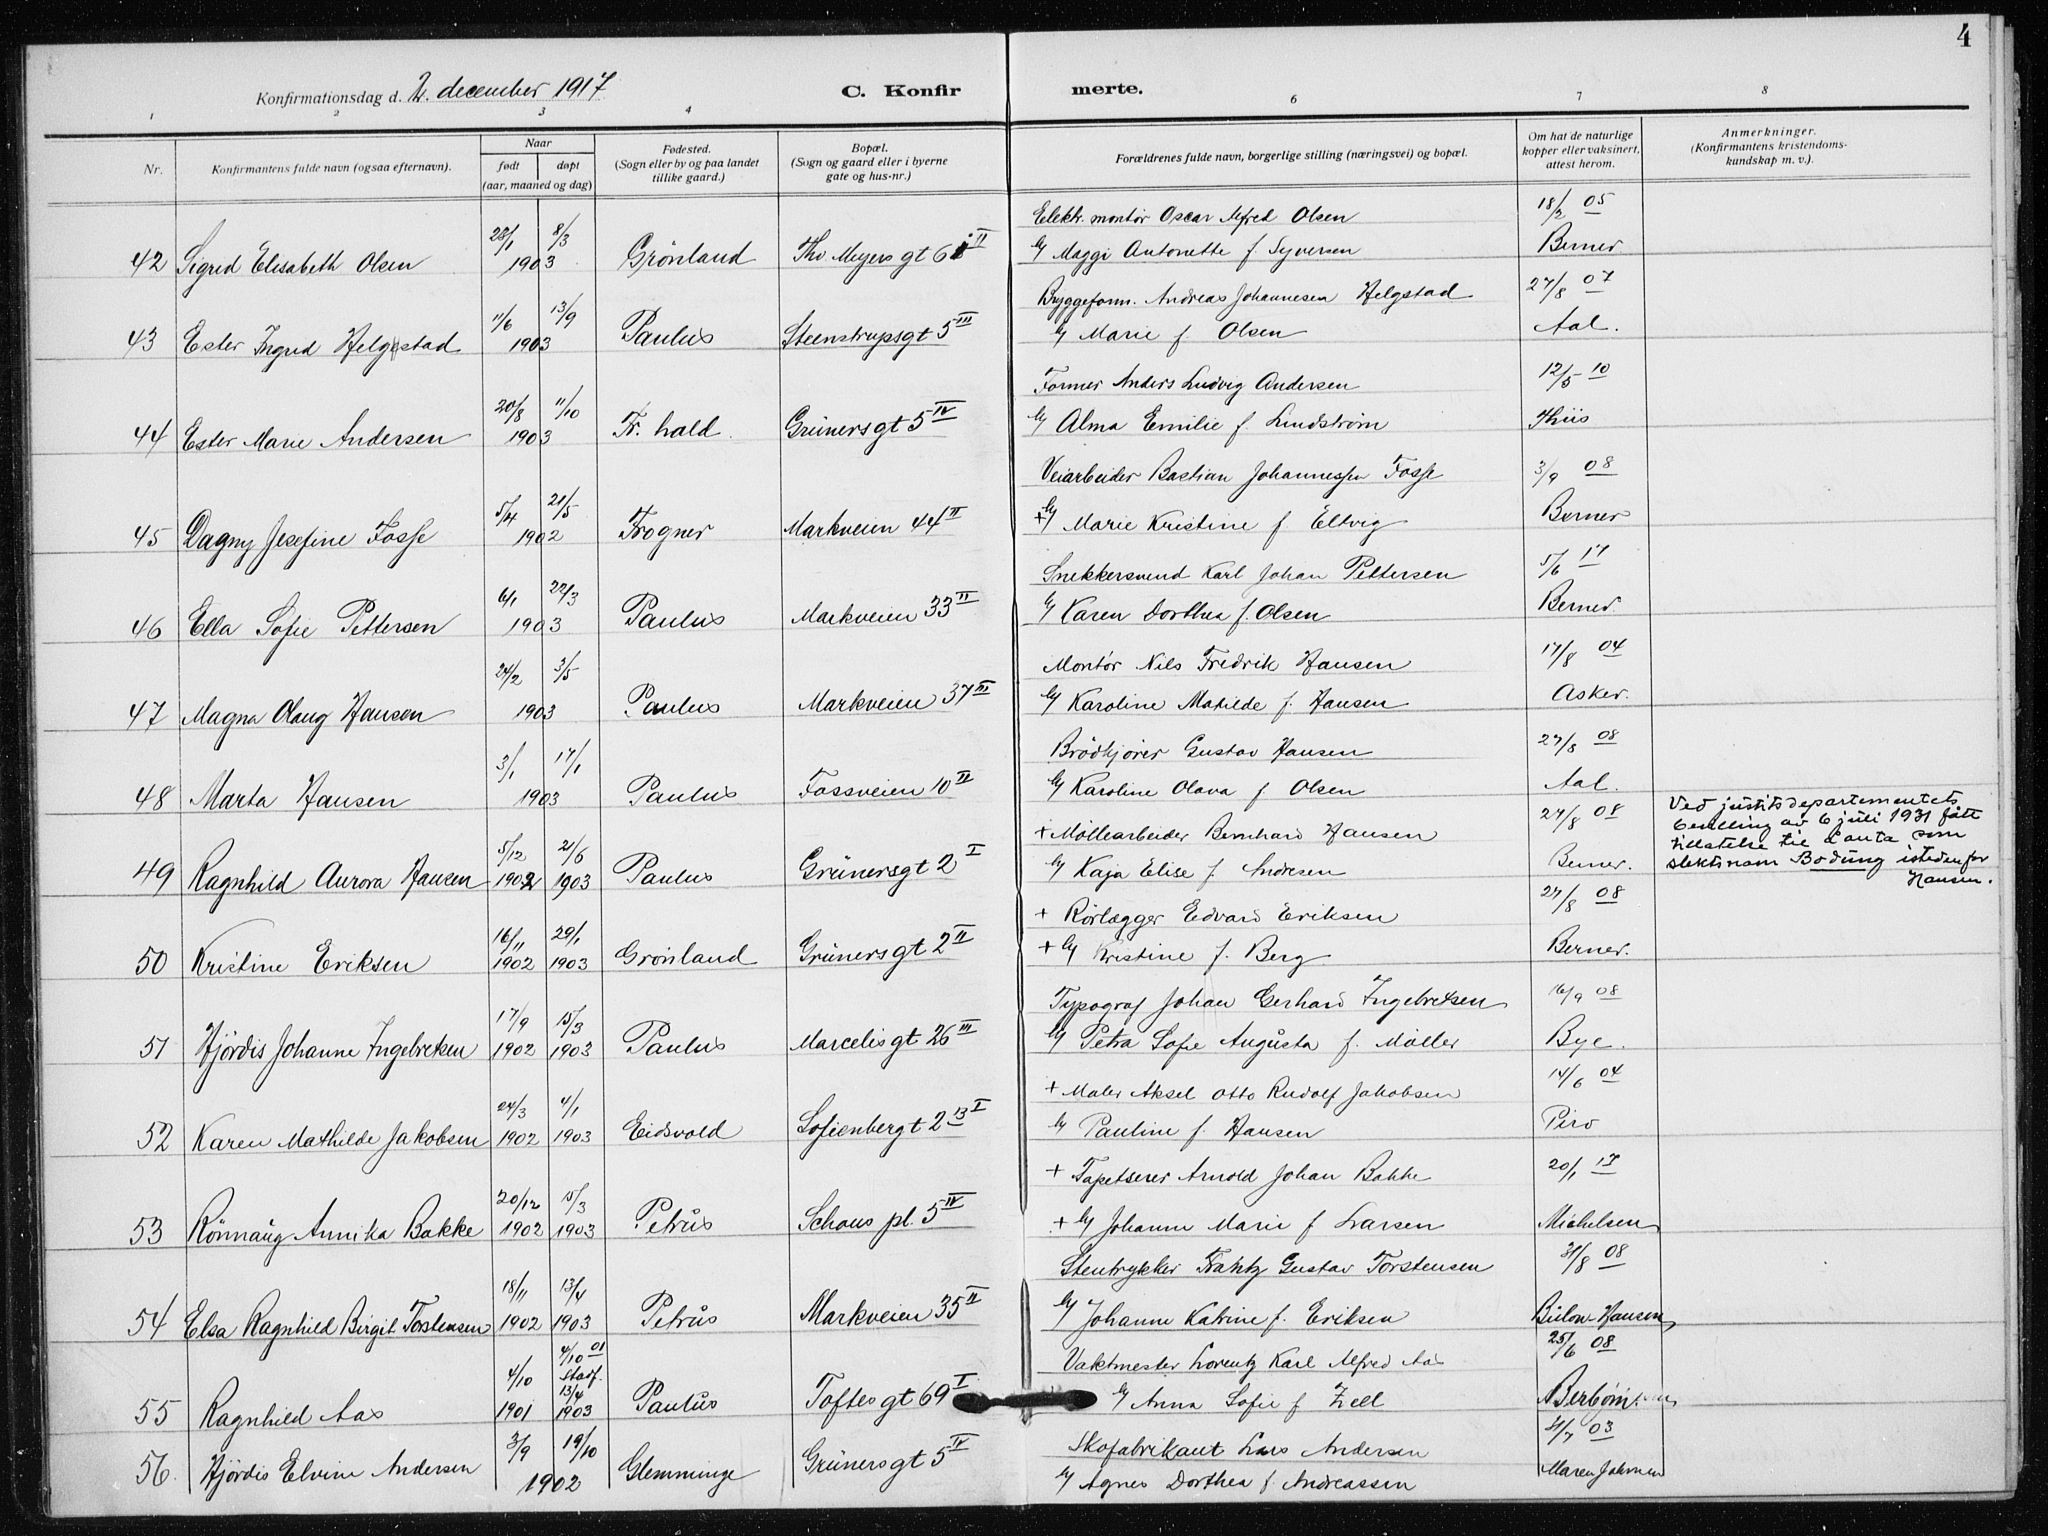 4
Konfirmationsdag d. 2. december 1917
C. Konfir merte.
1 2 3 4 6 7 8
Nr.
Konfirmantens fulde navn (ogsaa efternavn).
Naar
født døpt
(aar, maaned og dag)
Fødested.
(Sogn eller by og paa landet
tillike gaard.)
Bopæl.
(Sogn og gaard eller i byerne
gate og hus-nr.)
Forældrenes fulde navn, borgerlige stilling (næringsvei) og bopæl.
Om hat de naturlige
kopper eller vaksinert,
attest herom.
Anmerkninger.
(Konfirmantens kristendoms-
kundskap m. v.).
28/1 8/3 Elektr. montör Oscar Alfred Olsen 18/2 05
42 Sigrid Elisabeth Olsen 1903 Grönland Thv. Meyers gt 6 II Maggi Antonette f. Syversen Berner
11/6 13/9 Bryggeform. Andreas Johannesen Helgstad 27/8 07
43 Ester Ingrid Helgstad 1903 Paulus Steenstrupsgt 5 III Marie f. Olsen Aal.
20/8 11/10 Former Anders Ludvig Andersen 12/5 10
44 Ester Marie Andersen 1903 Tr. hald Grünersgt 5 IV Alma Emilie f. Lindström Thiis
5/4 21/5 Veiarbeider Bastian Johannessen Fosse 3/9 08
45 Dagny Josefine Fosse 1902 Frogner Markveien 44 II + Marie Kristine f. Eltvig Berner
6/1 22/3 Snekkersvend Karl Johan Pettersen 5/6 17
46 Ella Sofie Pettersen 1903 Paulus Markveien 33 II Karen Dorthea f. Olsen Berner
24/2 3/5 Montör Nils Fredrik Hansen 17/8 04
47 Magna Olaug Hansen 1903 Paulus Markveien 37 III Karoline Matilde f. Hansen Asker.
3/1 17/1 Brödkjörer Gustav Hansen 27/8 08
48 Marta Hansen 1903 Paulus Fossveien 10 II Karoline Olava f. Olsen Aal.
5/12 21/6 + Möllearbeider Bernhard Hansen 27/8 08
49 Ragnhild Aurora Hansen 1902 1903 Paulus Grünersgt 2 I Kaja Elise f. Andresen Berner.
Ved justitsdepartementets
bevilling av 6 juli 1931 fått
tillatelse til å anta som
slektsnam Bodung istedenfor
Hansen.
16/11 29/1 + Rörlægger Edvard Eriksen 27/8 08
50 Kristine Eriksen 1902 1903 Grönland Grünersgt 2 II + Kristine f. Berg Berner.
17/9 15/3 Typograf Johan Gerhard Ingebretsen 16/9 08
51 Hjördis Johanne Ingebretsen 1902 1903 Paulus Marcelisgt 26 III Petra Sofie Augusta f. Möller Bye.
24/3 4/1 + Maler Aksel Otto Rudolf Jakobsen 14/6 04
52 Karen Mathilde Jakobsen 1902 1903 Eidsvold Sofienbergt 2 B I Pauline f. Hansen Piro
20/12 15/3 + Tapetserer Arnold Johan Bakke 20/1 17
53 Rönnaug Annika Bakke 1902 1903 Petrus Schous pl. 5 IV + Johanne Marie f Larsen Michelsen
18/11 13/4 Stentrykker Frantz Gustav Torstensen 31/8 08
54 Elsa Ragnhild Birgit Torstensen 1902 1903 Petrus Markveien 35 II Johanne Katrine f. Eriksen Bülow-Hansen
4/10 4/10 01 Stadf. 13/4 Vaktmester Lorentz Karl Alfred Aas 25/6 08
55 Ragnhild Aas 1901 1903 Paulus Toftesgt 69 I Anna Sofie f Zell
3/9 19/10 Skofabrikant Lars Andersen 03
56. Hjördis Elvine Andersen 1902 Glemminge Grünersgt 5 IV Agnes Dorthea f. Andreassen Maren Johnsen